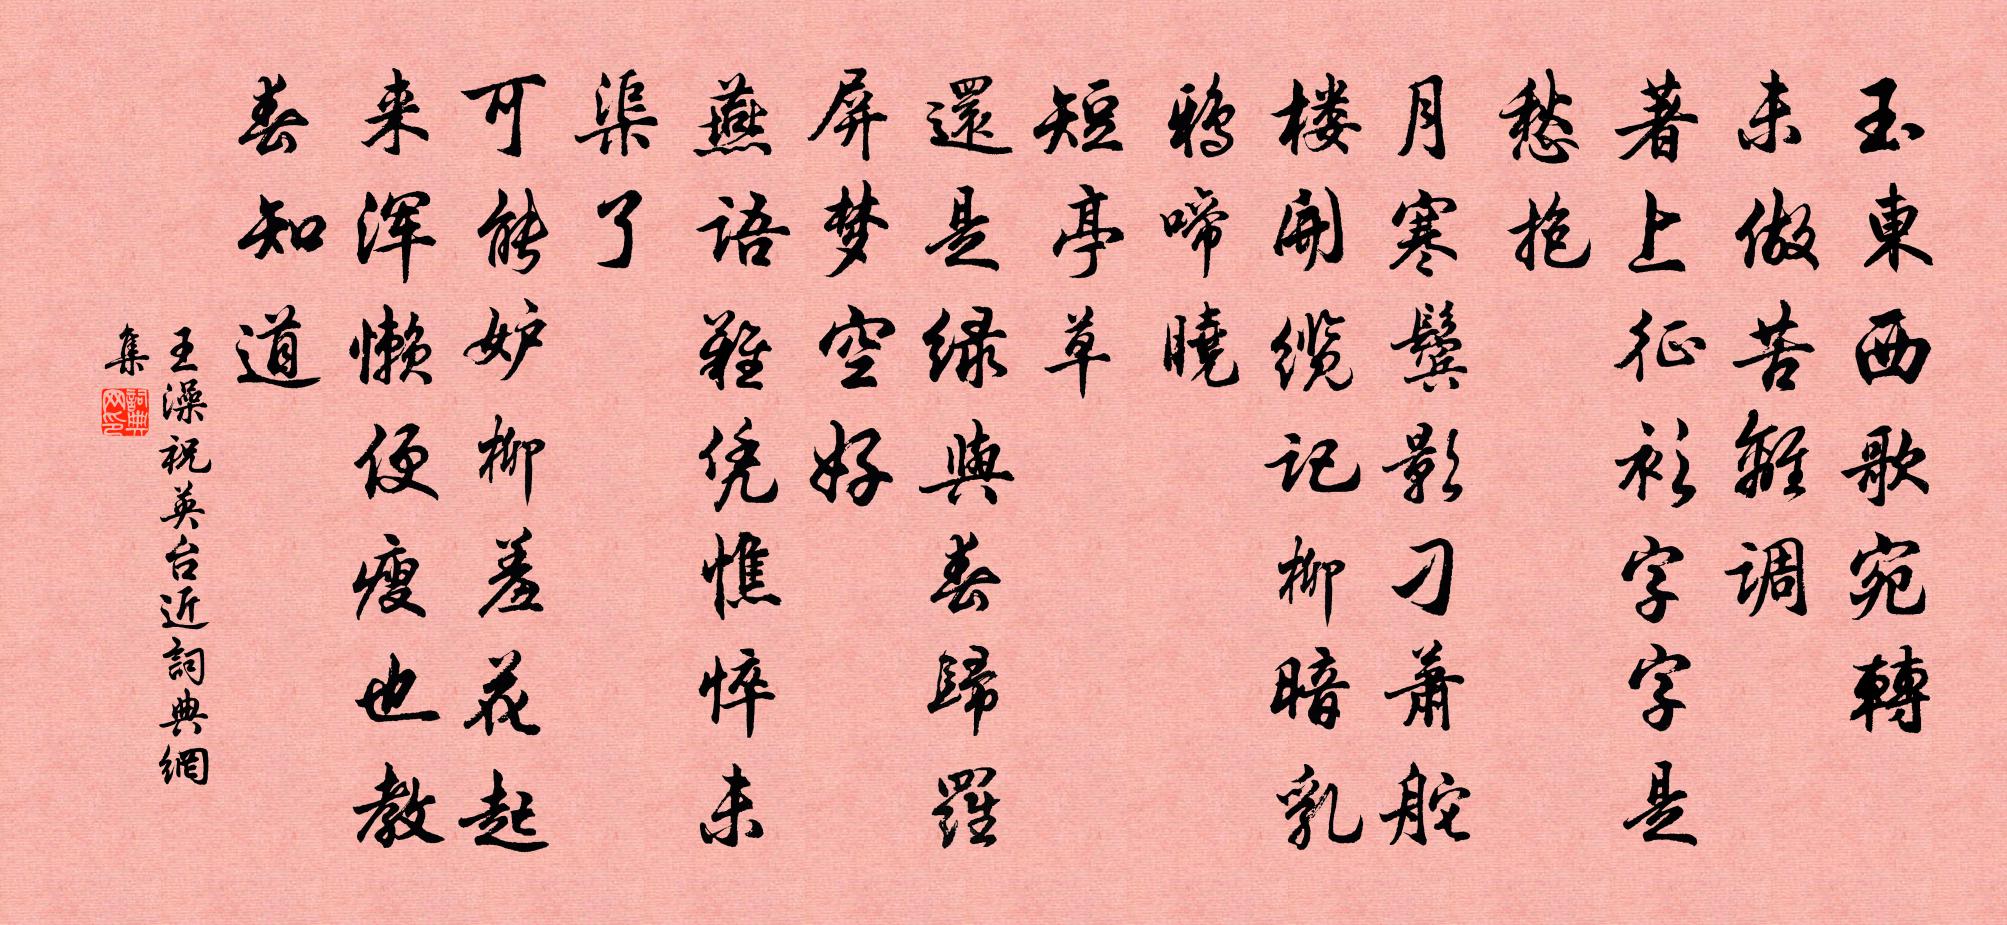 玉東西歌宛轉
未做苦離調
著上征衫字字是
愁抱
月寒鬓影刁萧舵
楼開缆记柳暗乳
鸦啼曉
短亭草
還是绿與春歸羅
屏梦空好
燕语難凭憔悴未
渠了
可能妒柳羞花起
来浑懒便瘦也教
春知道
王澡祝英台近詞典網
集
詞典
网印